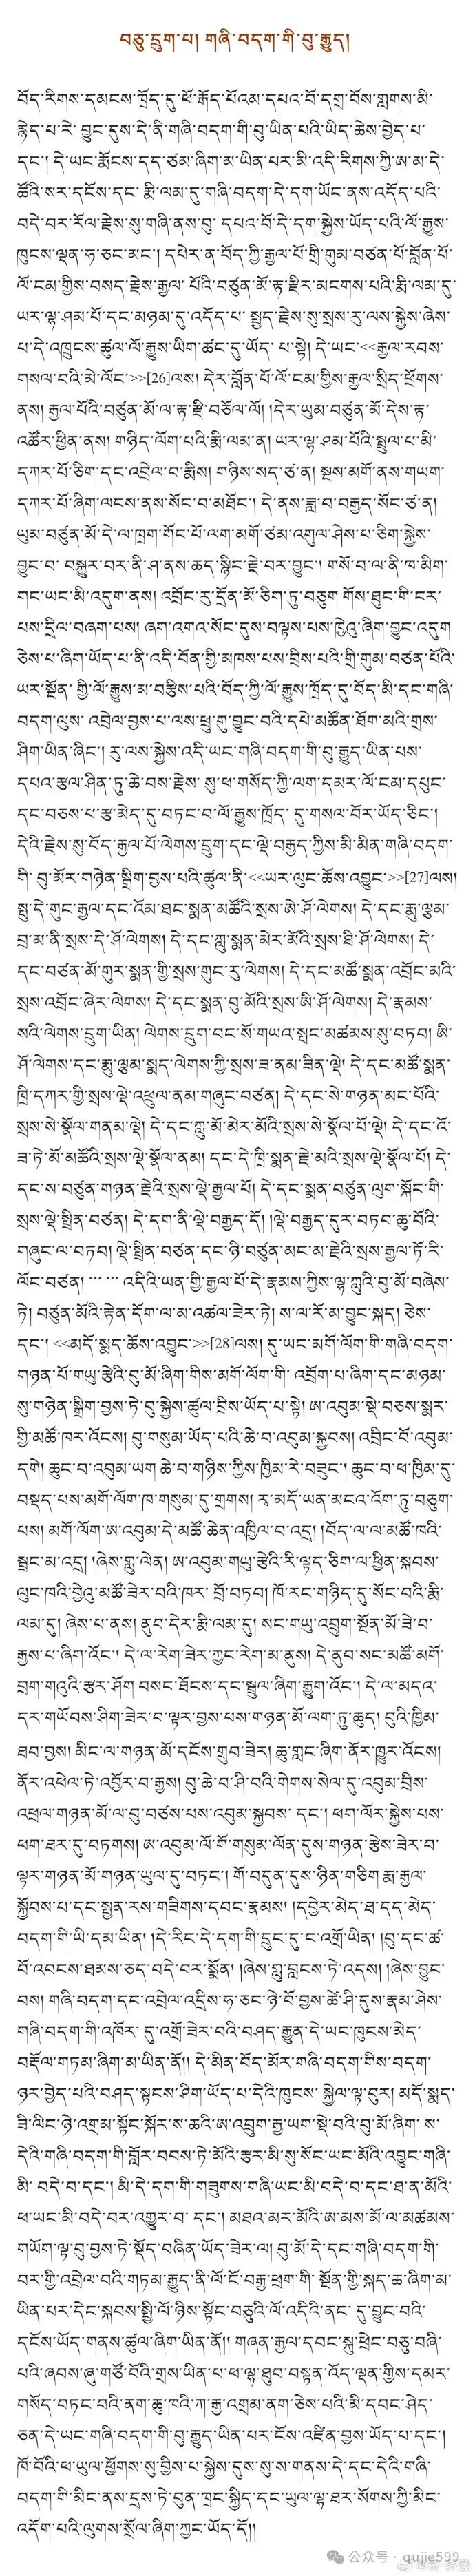 བཅུ་དྲུག་པ། གཞི་བདག་གི་བུ་རྒྱུད།
བོད་རིགས་དམངས་ཁྲོད་དུ་ཕོ་རྒོད་པོའམ་དཔའ་བོ་དགྲ་བོས་གླགས་མི་
རྙེད་པ་རེ་ བྱུང་དུས་དེ་ནི་གཞི་བདག་གི་བུ་ཡིན་པའི་ཡིད་ཆེས་བྱེད་པ་
དང་། དེ་ཡང་རྨོངས་དད་ཙམ་ཞིག་མ་ཡིན་པར་མི་འདི་རིགས་ཀྱི་ཨ་མ་དེ་
ཚོའི་སར་དངོས་དང་ རྨི་ལམ་དུ་གཞི་བདག་དེ་དག་ཡོང་ནས་འདོད་པའི་
བདེ་བར་རོལ་རྗེས་སུ་གཞི་ནས་བུ་ དཔའ་བོ་དེ་དག་སྐྱེས་ཡོད་པའི་ལོ་རྒྱུས་
ཁུངས་ལྡན་ཧ་ཅང་མང་། དཔེར་ན་བོད་ཀྱི་རྒྱལ་པོ་གྲི་གུམ་བཙན་པོ་བློན་པོ་
ལོ་ངམ་གྱིས་བསད་རྗེས་རྒྱལ་ པོའི་བཙུན་མོ་རྟ་རྫིར་མངགས་པའི་རྨི་ལམ་དུ་
ཡར་ལྷ་ཤམ་པོ་དང་མཉམ་དུ་འདོད་པ་ སྤྱད་རྗེས་སུ་སྲས་རུ་ལས་སྐྱེས་ཞེས་
པ་དེ་འཁྲུངས་ཚུལ་ལོ་རྒྱུས་ཡིག་ཚང་དུ་ཡོད་ པ་སྟེ། དེ་ཡང་<<རྒྱལ་རབས་
གསལ་བའི་མེ་ལོང་>>[26]ལས། དེར་བློན་པོ་ལོ་ངམ་གྱིས་རྒྱལ་སྲིད་ཕྲོགས་
ནས། རྒྱལ་པོའི་བཙུན་མོ་ལ་རྟ་རྫི་བཅོལ་ལོ། །དེར་ཡུམ་བཙུན་མོ་དེས་རྟ་
འཚོར་ཕྱིན་ནས། གཉིད་ལོག་པའི་རྨི་ལམ་ན། ཡར་ལྷ་ཤམ་པོའི་སྤྲུལ་པ་མི་
དཀར་པོ་ཅིག་དང་འབྲེལ་བ་རྨིས། གཉིས་སད་ཙ་ན། སྔས་མགོ་ནས་གཡག་
དཀར་པོ་ཞིག་ལངས་ནས་སོང་བ་མཐོང་། དེ་ནས་ཟླ་བ་བརྒྱད་སོང་ཙ་ན།
ཡུམ་བཙུན་མོ་དེ་ལ་ཁྲག་གོང་པོ་ལག་མགོ་ཙམ་འགུལ་ཤེས་པ་ཅིག་སྐྱེས་
བྱུང་བ་ བསྐྱུར་བར་ནི་ཤ་ནས་ཆད་སྙིང་རྗེ་བར་བྱུང་། གསོ་བ་ལ་ནི་ཁ་མིག་
གང་ཡང་མི་འདུག་ནས། འབྲོང་རུ་དྲོན་མོ་ཅིག་ཏུ་བཅུག་གོས་ཐུང་གི་ངར་
པས་དྲིལ་བཞག་པས། ཞག་འགའ་སོང་དུས་བལྟས་པས་ཁྱེའུ་ཞིག་བྱུང་འདུག་
ཅེས་པ་ཞིག་ཡོད་པ་ནི་འདི་བོན་གྱི་མཁས་པས་བྲིས་པའི་གྲི་གུམ་བཙན་པོའི་
ཡར་སྔོན་ གྱི་ལོ་རྒྱུས་མ་བརྩིས་པའི་བོད་ཀྱི་ལོ་རྒྱུས་ཁྲོད་དུ་བོད་མི་དང་གཞི་
བདག་ལུས་ འབྲེལ་བྱས་པ་ལས་ཕྲུ་གུ་བྱུང་བའི་དཔེ་མཚོན་ཐོག་མའི་གྲས་
ཤིག་ཡིན་ཞིང་། རུ་ལས་སྐྱེས་འདི་ཡང་གཞི་བདག་གི་བུ་རྒྱུད་ཡིན་པས་
དཔའ་རྩལ་ཤིན་ཏུ་ཆེ་བས་རྗེས་ སུ་ཕ་གསོད་ཀྱི་ལག་དམར་ལོ་ངམ་དཔུང་
དང་བཅས་པ་རྩ་མེད་དུ་བཏང་བ་ལོ་རྒྱུས་ཁྲོད་ དུ་གསལ་བོར་ཡོད་ཅིང་།
དེའི་རྗེས་སུ་བོད་རྒྱལ་པོ་ལེགས་དྲུག་དང་ལྡེ་བརྒྱད་ཀྱིས་མི་མིན་གཞི་བདག་
གི་ བུ་མོར་གཉེན་སྒྲིག་བྱས་པའི་ཚུལ་ནི་<<ཡར་ལུང་ཆོས་འབྱུང་>>[27]ལས།
སྤུ་དེ་གུང་རྒྱལ་དང་འོམ་ཐང་སྨན་མཚོའི་སྲས་ཨེ་ཤོ་ལེགས། དེ་དང་རྨུ་ལྕམ་
བྲ་མ་ནི་སྲས་དེ་ཤོ་ལེགས། དེ་དང་ཀླུ་སྨན་མེར་མོའི་སྲས་ཐི་ཤོ་ལེགས། དེ་
དང་བཙན་མོ་གུར་སྨན་གྱི་སྲས་གུང་རུ་ལེགས། དེ་དང་མཚོ་སྨན་འབྲོང་མའི་
སྲས་འབྲོང་ཞེར་ལེགས། དེ་དང་སྨན་བུ་མོའི་སྲས་ཨི་ཤོ་ལེགས། དེ་རྣམས་
སའི་ལེགས་དྲུག་ཡིན། ལེགས་དྲུག་བང་སོ་གཡའ་སྤང་མཚམས་སུ་བཏབ། ཨི་
ཤོ་ལེགས་དང་རྨུ་ལྕམ་སྨད་ལེགས་ཀྱི་སྲས་ཟ་ནམ་ཟིན་ལྡེ། དེ་དང་མཚོ་སྨན་
ཁྲི་དཀར་གྱི་སྲས་ལྡེ་འཕྲུལ་ནམ་གཞུང་བཙན། དེ་དང་སེ་གཉན་མང་པོའི་
སྲས་སེ་སྣོལ་གནམ་ལྡེ། དེ་དང་ཀླུ་མོ་མེར་མོའི་སྲས་སེ་སྣོལ་པོ་ལྡེ། དེ་དང་འོ་
ཟ་ཏེ་མོ་མཚོའི་སྲས་ལྡེ་སྣོལ་ནམ། དང་དེ་ཁྲི་སྨན་རྗེ་མའི་སྲས་ལྡེ་སྣོལ་པོ། དེ་
དང་ས་བཙུན་གཉན་རྗེའི་སྲས་ལྡེ་རྒྱལ་པོ། དེ་དང་སྨན་བཙུན་ལུག་སྐོང་གི་
སྲས་ལྡེ་སྤྲིན་བཙན། དེ་དག་ནི་ལྡེ་བརྒྱད་དོ། །ལྡེ་བརྒྱད་དུར་བཏབ་ཆུ་བོའི་
གཞུང་ལ་བཏབ། ལྡེ་སྤྲིན་བཙན་དང་ཉི་བཙུན་མང་མ་རྗེའི་སྲས་རྒྱལ་ཏོ་རི་
ལོང་བཙན། ⋯ ⋯ འདིའི་ཡན་གྱི་རྒྱལ་པོ་དེ་རྣམས་ཀྱིས་ལྷ་ཀླུའི་བུ་མོ་བཞེས་
ཏེ། བཙུན་མོའི་རྟེན་དོག་ལ་མ་འཚལ་ཟེར་ཏེ། ས་ལ་རོ་མ་བྱུང་སྐད། ཅེས་
དང་། <<མདོ་སྨད་ཆོས་འབྱུང་>>[28]ལས། དུ་ཡང་མགོ་ལོག་གི་གཞི་བདག་
གཉན་པོ་གཡུ་རྩེའི་བུ་མོ་ཞིག་གིས་མགོ་ལོག་གི་ འབྲོག་པ་ཞིག་དང་མཉམ་
སུ་གཉེན་སྒྲིག་བྱས་ཏེ་བུ་སྐྱེས་ཚུལ་བྲིས་ཡོད་པ་སྟེ། ཨ་འབུམ་སྡེ་བཅས་སྨར་
གྱི་མཚོ་ཁར་འོངས། བུ་གསུམ་ཡོད་པའི་ཆེ་བ་འབུམ་སྐྱབས། འབྲིང་བོ་འབུམ་
དགེ། ཆུང་བ་འབུམ་ཡག་ཆེ་བ་གཉིས་ཀྱིས་ཁྱིམ་རེ་བཟུང་། ཆུང་བ་ཕ་ཁྱིམ་དུ་
བསྡད་པས་མགོ་ལོག་ཁ་གསུམ་དུ་གྲགས། ར་མདོ་ཡན་མངའ་འོག་ཏུ་བཅུག་
པས། མགོ་ལོག་ཨ་འབུམ་དེ་མཚོ་ཆེན་འཁྱིལ་བ་འདྲ། །བོད་ལ་ལ་མཚོ་ཁའི་
སྦྲང་མ་འདྲ། །ཞེས་གླུ་ལེན། ཨ་འབུམ་གཡུ་རྩེའི་རི་ལྟད་ཅིག་ལ་ཕྱིན་སྐབས་
ལུང་ཁའི་བྱེའུ་མཚོ་ཟེར་བའི་ཁར་ བྲོ་བཏབ། ཁོ་རང་གཉིད་དུ་སོང་བའི་རྨི་
ལམ་དུ། ཞེས་པ་ནས། ནུབ་དེར་རྨི་ལམ་དུ། སང་གཡུ་འབྲུག་སྔོན་མོ་ཟེ་བ་
རྒྱས་པ་ཞིག་འོང་། དེ་ལ་རེག་ཟེར་ཀྱང་རེག་མ་ནུས། དེ་ནུབ་སང་མཚོ་མགོ་
བྲག་གའུའི་རྩར་ཤོག་བསང་ཐོངས་དང་སྦྲུལ་ཞིག་རྒྱུག་འོང་། དེ་ལ་མདའ་
དར་གཡོབས་ཤིག་ཟེར་བ་ལྟར་བྱས་པས་གཉན་མོ་ལག་ཏུ་ཆུད། བུའི་ཁྱིམ་
ཐབ་བྱས། མིང་ལ་གཉན་མོ་དངོས་གྲུབ་ཟེར། ཆུ་གླང་ཞིག་ནོར་ཁྱུར་འོངས།
ནོར་འཕེལ་ཏེ་འབྱོར་བ་རྒྱས། བུ་ཆེ་བ་ཤི་བའི་གེགས་སེལ་དུ་འབུམ་བྲིས་
འཕྲལ་གཉན་མོ་ལ་བུ་བཙས་པས་འབུམ་སྐྱབས་ དང་། ཕག་ལོར་སྐྱེས་པས་
ཕག་ཐར་དུ་བཏགས། ཨ་འབུམ་ལོ་གོ་གསུམ་ལོན་དུས་གཉན་རྩེས་ཟེར་བ་
ལྟར་གཉན་མོ་གཉན་ཡུལ་དུ་བཏང་། གོ་བདུན་དུས་ཉིན་གཅིག་རྨ་རྒྱལ་
སྐྱོབས་པ་དང་སྤྱན་རས་གཟིགས་དབང་རྣམས། །དབྱེར་མེད་ཐ་དད་མེད་
བདག་གི་ཡི་དམ་ཡིན། །དེ་རིང་དེ་དག་གི་དྲུང་དུ་ང་འགྲོ་ཡིན། །བུ་དང་ཚ་
བོ་འབངས་ཐམས་ཅད་བདེ་བར་སྨོན། །ཞེས་གླུ་བླངས་ཏེ་འདས། །ཞེས་བྱུང་
བས། གཞི་བདག་དང་འབྲེལ་འདྲིས་ཧ་ཅང་ཉེ་བོ་བྱས་ཚེ་ཤི་དུས་རྣམ་ཤེས་
གཞི་བདག་གི་འཁོར་ དུ་འགྲོ་ཟེར་བའི་བཤད་རྒྱུན་དེ་ཡང་ཁུངས་མེད་
བརྡོལ་གཏམ་ཞིག་མ་ཡིན་ནོ།། དེ་མིན་བོད་མོར་གཞི་བདག་གིས་བདག་
ཉར་བྱེད་པའི་བཤད་སྟངས་ཤིག་ཡོད་པ་དེའི་ཁུངས་ སྐྱེལ་ལྟ་བུར། མདོ་སྨད་
ཟི་ལིང་ཉེ་འགྲམ་སྟོང་སྐོར་ས་ཆའི་ཨ་འབྲུག་རྒྱ་ཡག་སྡེ་བའི་བུ་མོ་ཞིག་ ས་
དེའི་གཞི་བདག་གི་བློར་བབས་ཏེ་མོའི་རྩར་མི་སུ་སོང་ཡང་མོའི་འབྱུང་གཞི་
མི་ བདེ་བ་དང་། མི་དེ་དག་གི་གཟུགས་གཞི་ཡང་མི་བདེ་བ་དང་ཐ་ན་མོའི་
ཕ་ཡང་མི་བདེ་བར་འགྱུར་བ་ དང་། མཐའ་མར་མོའི་ཨ་མས་མོ་ལ་མཚམས་
གཡོག་ལྟ་བུ་བྱས་ཏེ་སྡོད་བཞིན་ཡོད་ཟེར་ལ། བུ་མོ་དེ་དང་གཞི་བདག་གི་
བར་གྱི་འབྲེལ་བའི་གཏམ་རྒྱུད་ནི་ལོ་ངོ་བརྒྱ་ཕྲག་གི་ སྔོན་གྱི་སྐད་ཆ་ཞིག་མ་
ཡིན་པར་དེང་སྐབས་སྤྱི་ལོ་ཉིས་སྟོང་བཅུའི་ལོ་འདིའི་ནང་ དུ་བྱུང་བའི་
དངོས་ཡོད་གནས་ཚུལ་ཞིག་ཡིན་ནོ།། གཞན་རྒྱལ་དབང་སྐུ་ཕྲེང་བཅུ་བཞི་
པའི་ཞབས་ཞུ་གཙོ་བོའི་གྲས་ཡིན་པ་ཕ་ལྷ་ཐུབ་བསྟན་འོད་ལྡན་གྱིས་དམར་
གསོད་བཏང་བའི་ནག་ཆུ་ཁའི་ཀ་རྒྱ་འགྲམ་ནག་ཅེས་པའི་མི་དབང་ཤེད་
ཅན་དེ་ཡང་གཞི་བདག་གི་བུ་རྒྱུད་ཡིན་པར་ངོས་འཛིན་བྱས་ཡོད་པ་དང་།
ཁོ་བོའི་ཕ་ཡུལ་ཕྱོགས་སུ་བྱིས་པ་སྐྱེས་དུས་སུ་ས་གནས་དེ་དང་དེའི་གཞི་
བདག་གི་མིང་ནས་དྲས་ཏེ་བུན་ཁྲང་སྐྱིད་དང་ཡུལ་ལྷ་ཐར་སོགས་ཀྱི་མིང་
འདོག་པའི་ལུགས་སྲོལ་ཞིག་ཀྱང་ཡོད་དོ།།
公众号 · qujie599